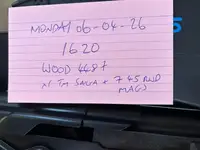 MONDAY 06-04-26
1620
WOOD 4487
x1 TM SAGA + 7 45 RND
MAGS